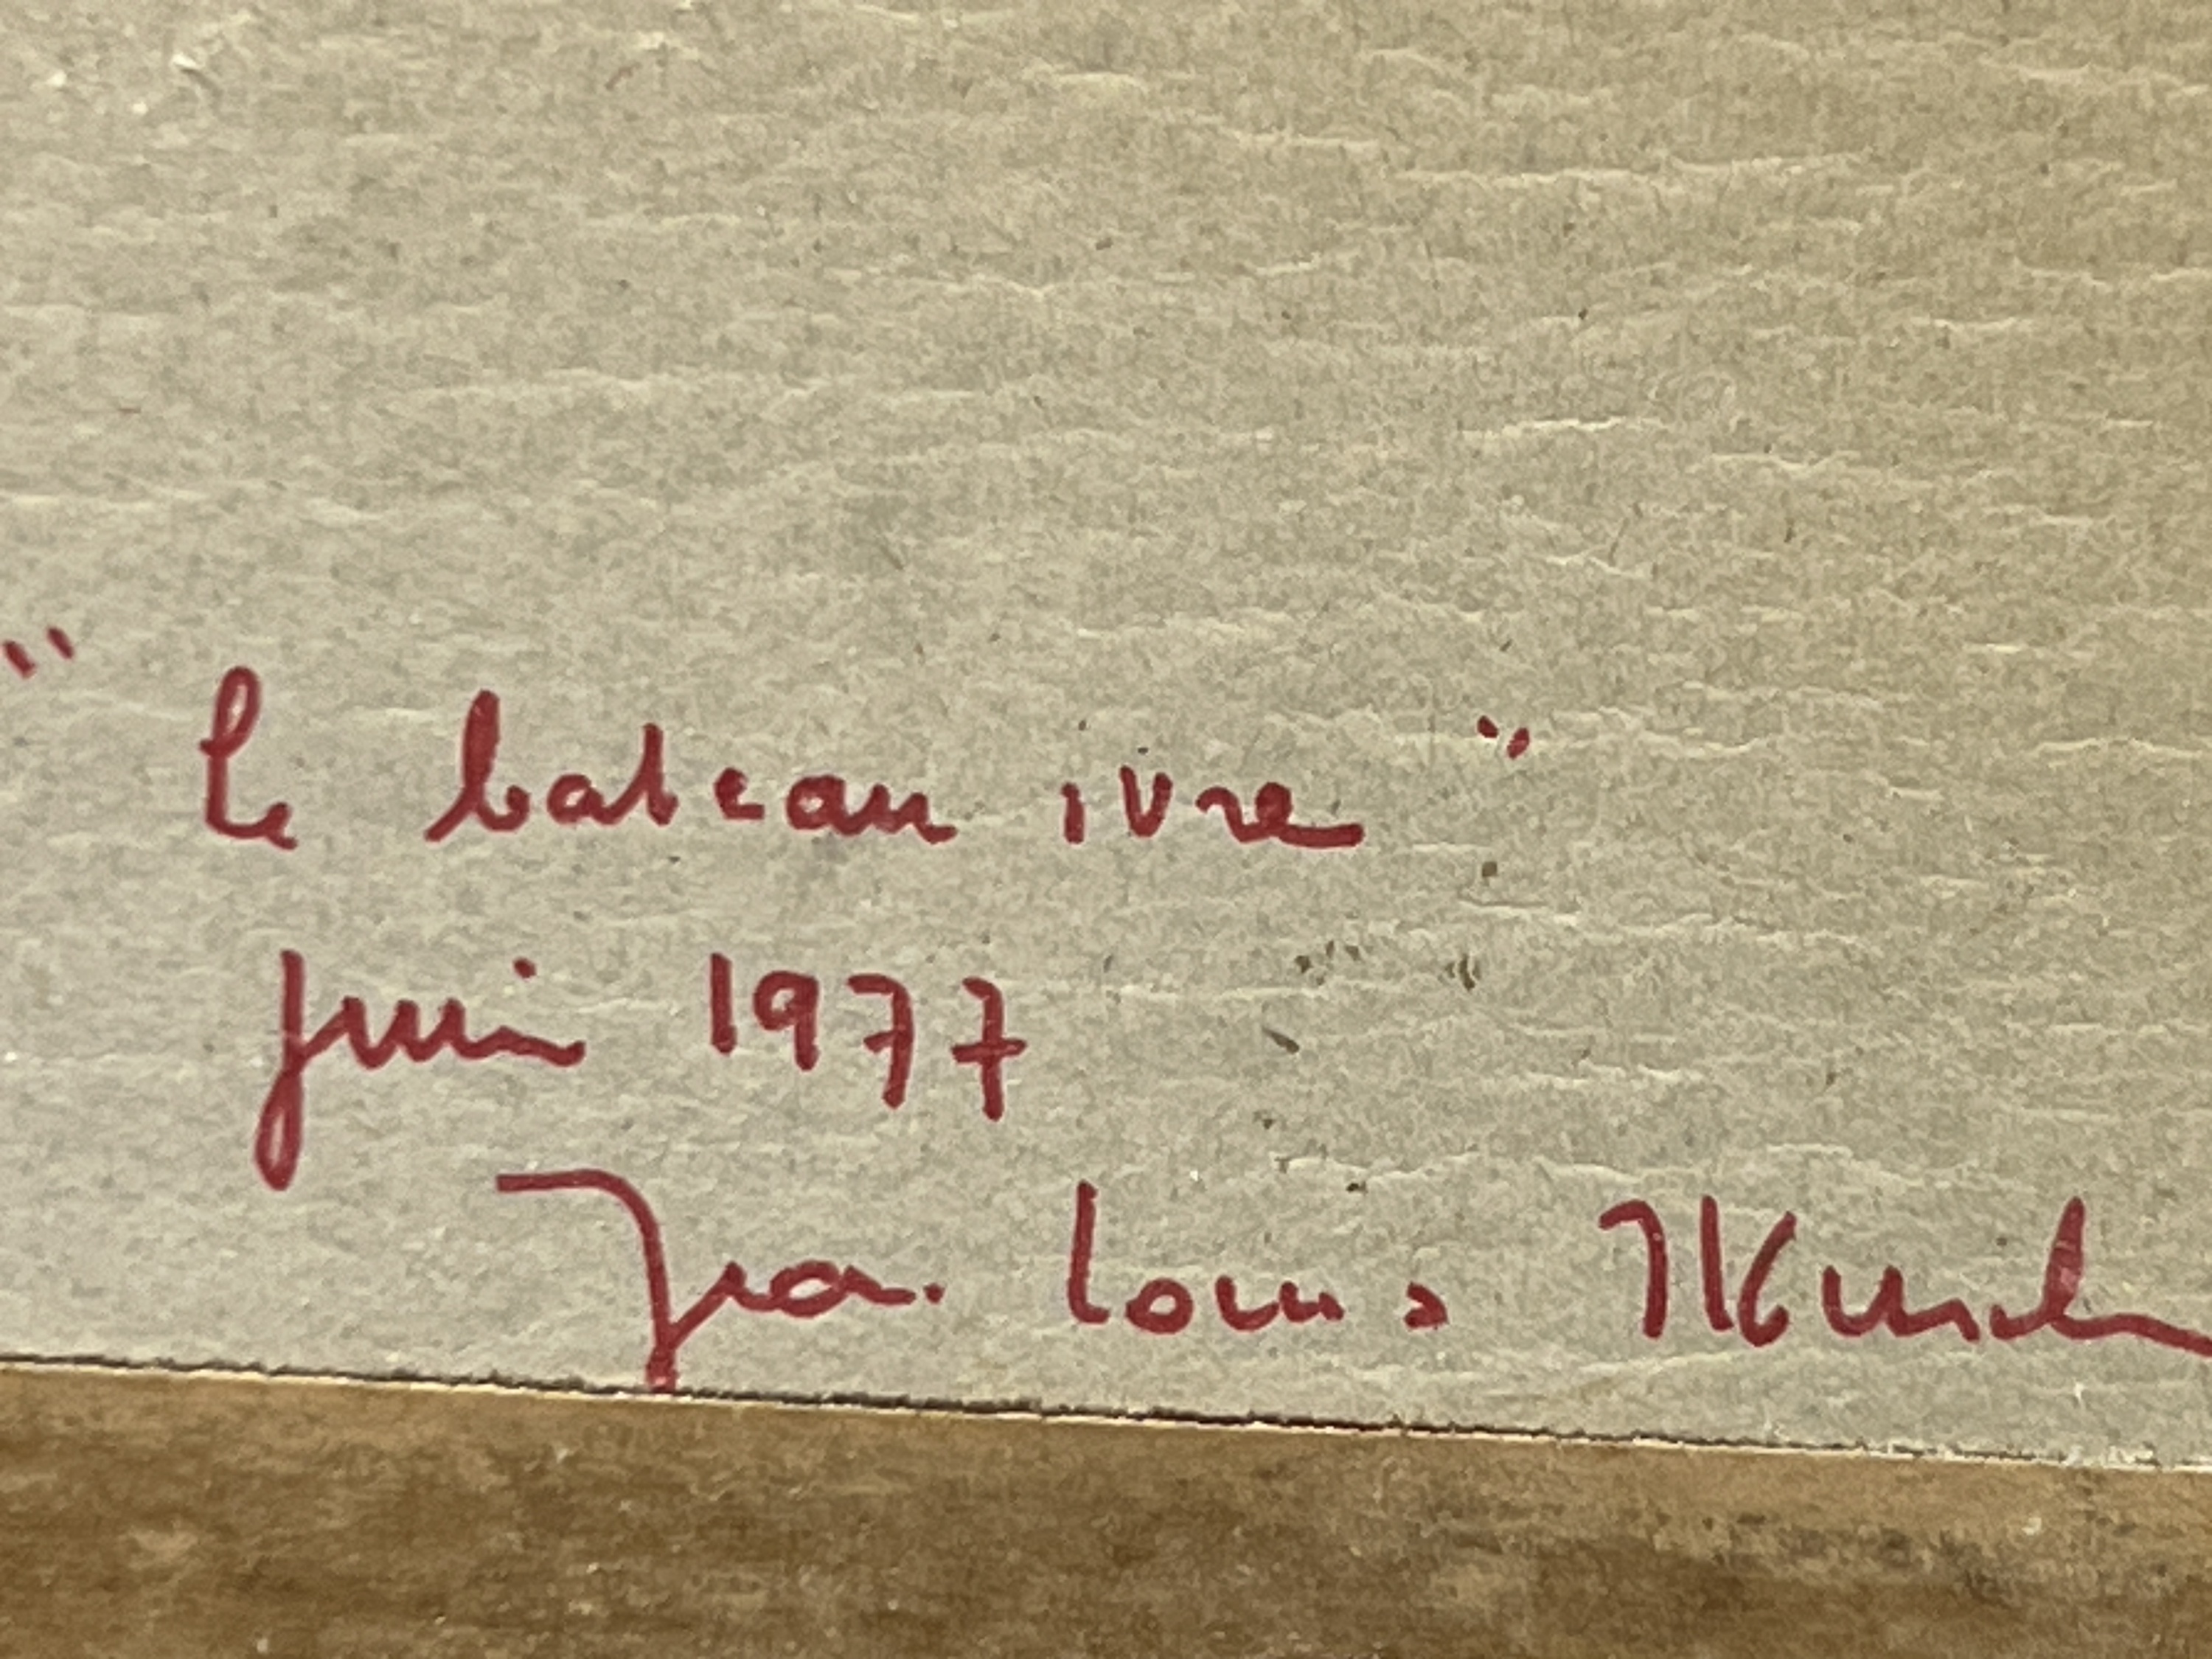 " le bateau ivre "
juin 1977
Jean Louis